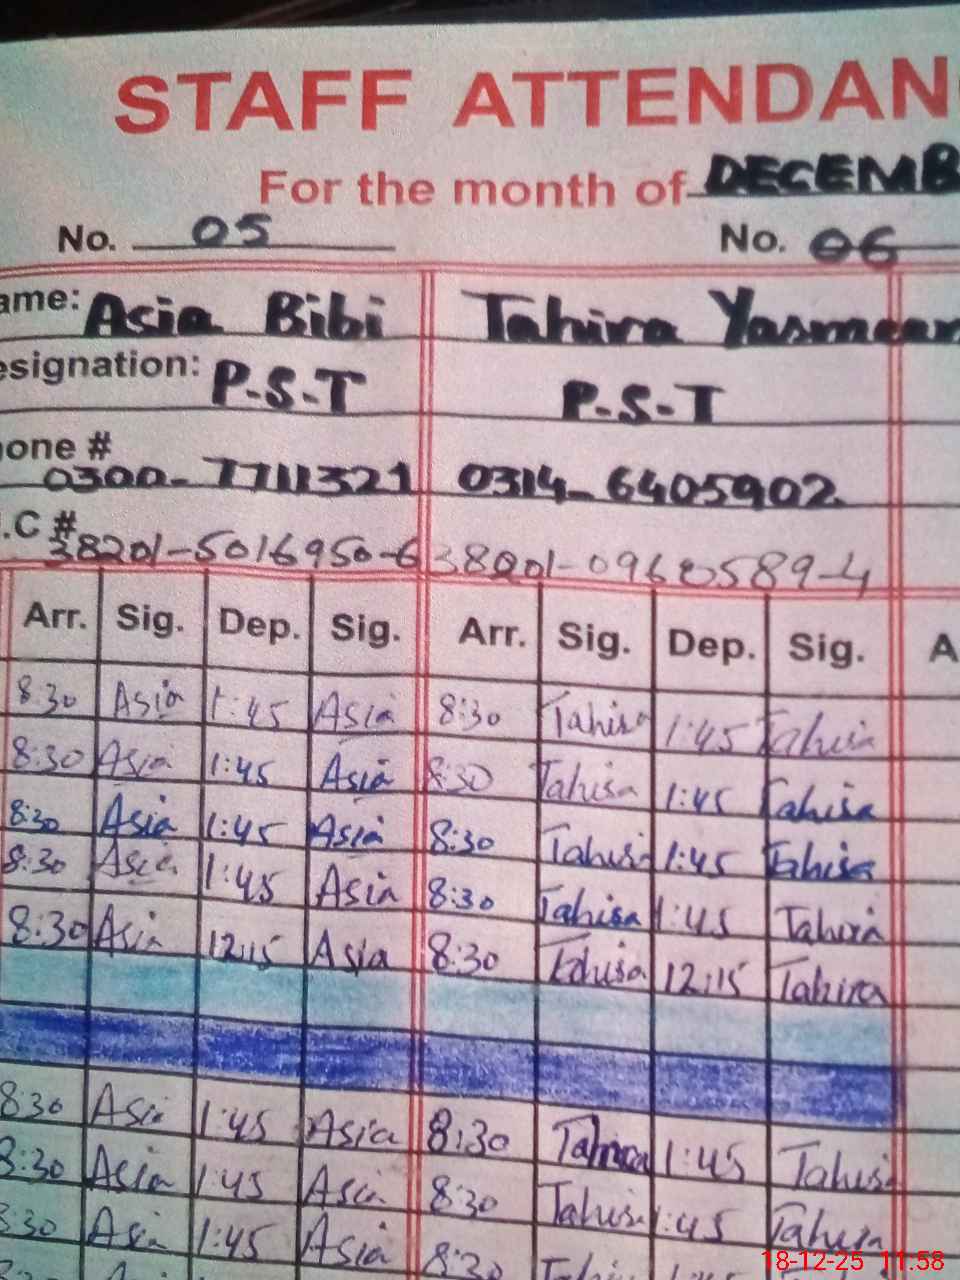 STAFF ATTENDAN
For the month of DECEMB
No. 05 No. 06
ame: Asia Bibi Tahira Yasmeen
esignation: P-S-T P-S-T
one # 0300-7711321 0314-6405902
.C # 38201-5016950-6 38201-0960589-4
Arr. Sig. Dep. Sig. Arr. Sig. Dep. Sig. A
8:30 Asia 1:45 Asia 8:30 Tahira 1:45 Tahira
8:30 Asia 1:45 Asia 8:30 Tahira 1:45 Tahira
8:30 Asia 1:45 Asia 8:30 Tahira 1:45 Tahira
8:30 Asia 1:45 Asia 8:30 Tahira 1:45 Tahira
8:30 Asia 12:15 Asia 8:30 Tahira 12:15 Tahira
8:30 Asia 1:45 Asia 8:30 Tahira 1:45 Tahira
8:30 Asia 1:45 Asia 8:30 Tahira 1:45 Tahira
8:30 Asia 1:45 Asia 8:30
18-12-25 11.58